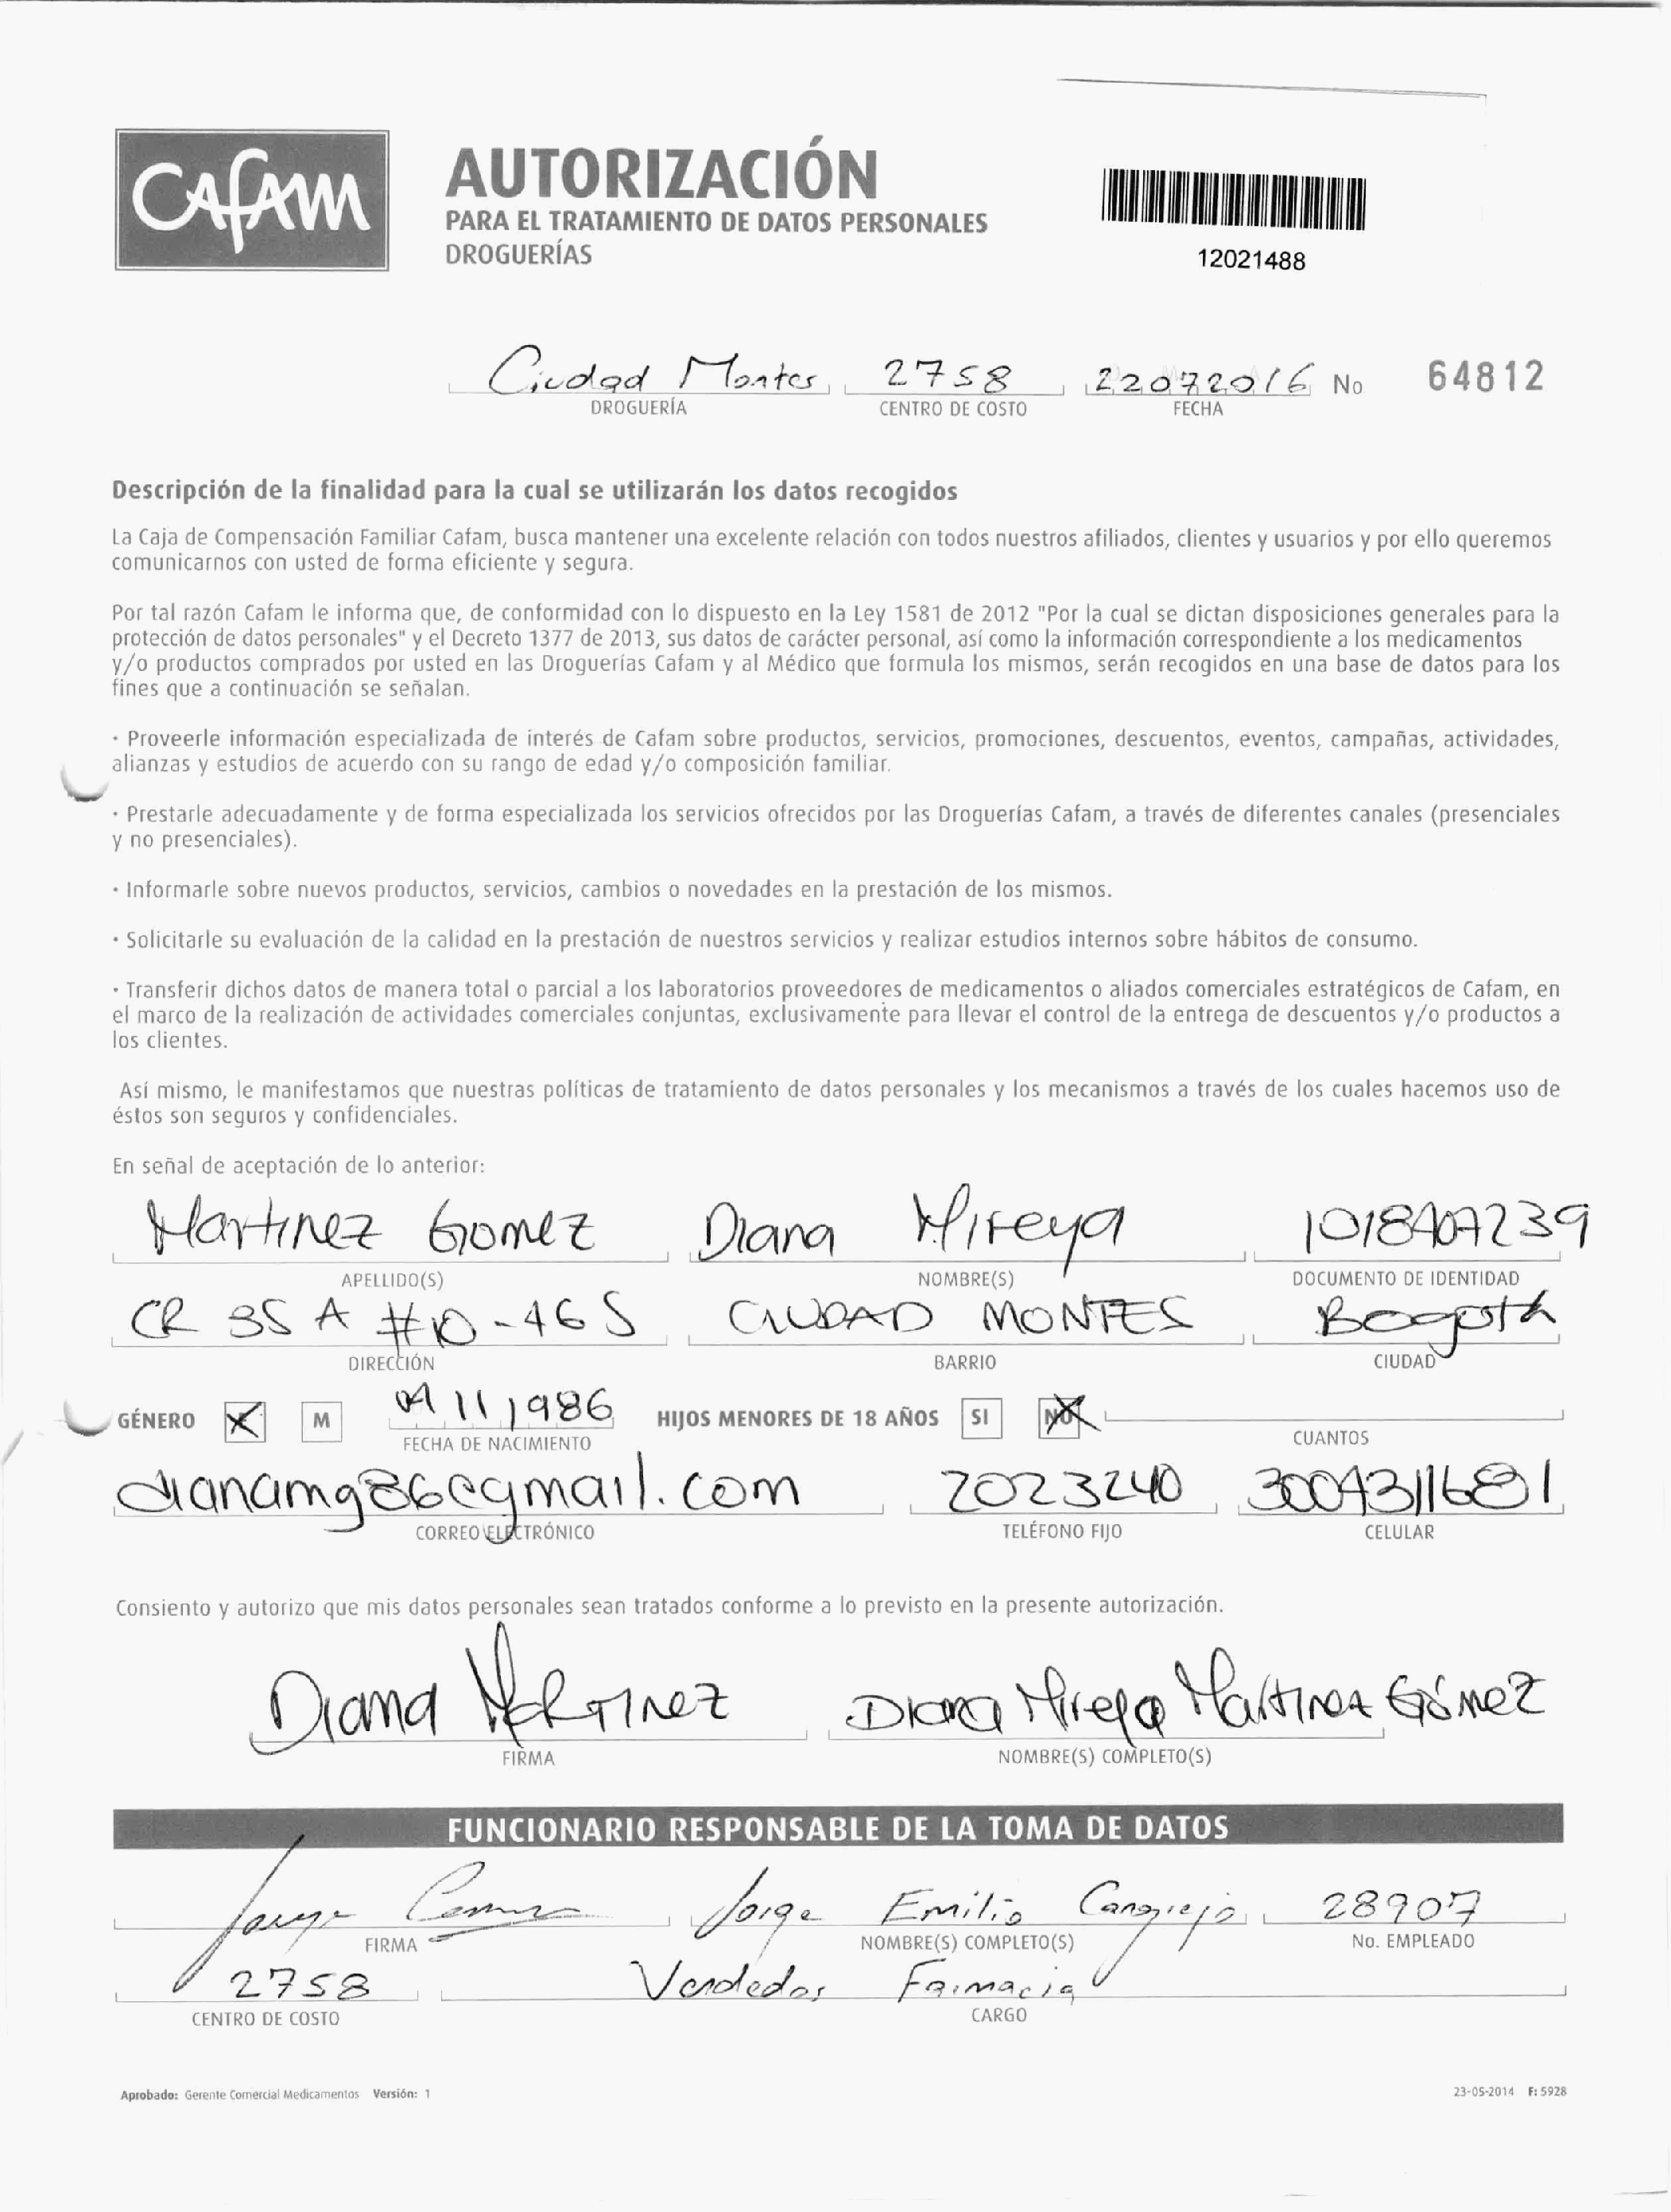 CAFAM
AUTORIZACIÓN
PARA EL TRATAMIENTO DE DATOS PERSONALES
DROGUERÍAS
12021488
Ciudad Montes 2758 22072016 No 64812
DROGUERÍA CENTRO DE COSTO FECHA
Descripción de la finalidad para la cual se utilizarán los datos recogidos
La Caja de Compensación Familiar Cafam, busca mantener una excelente relación con todos nuestros afiliados, clientes y usuarios y por ello queremos
comunicarnos con usted de forma eficiente y segura.
Por tal razón Cafam le informa que, de conformidad con lo dispuesto en la Ley 1581 de 2012 "Por la cual se dictan disposiciones generales para la
protección de datos personales" y el Decreto 1377 de 2013, sus datos de carácter personal, así como la información correspondiente a los medicamentos
y/o productos comprados por usted en las Droguerías Cafam y al Médico que formula los mismos, serán recogidos en una base de datos para los
fines que a continuación se señalan.
· Proveerle información especializada de interés de Cafam sobre productos, servicios, promociones, descuentos, eventos, campañas, actividades,
alianzas y estudios de acuerdo con su rango de edad y/o composición familiar.
· Prestarle adecuadamente y de forma especializada los servicios ofrecidos por las Droguerías Cafam, a través de diferentes canales (presenciales
y no presenciales).
· Informarle sobre nuevos productos, servicios, cambios o novedades en la prestación de los mismos.
· Solicitarle su evaluación de la calidad en la prestación de nuestros servicios y realizar estudios internos sobre hábitos de consumo.
· Transferir dichos datos de manera total o parcial a los laboratorios proveedores de medicamentos o aliados comerciales estratégicos de Cafam, en
el marco de la realización de actividades comerciales conjuntas, exclusivamente para llevar el control de la entrega de descuentos y/o productos a
los clientes.
Así mismo, le manifestamos que nuestras políticas de tratamiento de datos personales y los mecanismos a través de los cuales hacemos uso de
éstos son seguros y confidenciales.
En señal de aceptación de lo anterior:
Martinez Gomez Diana Mireya 1018407239
APELLIDO(S) NOMBRE(S) DOCUMENTO DE IDENTIDAD
CR 35 A #10-46 S CIUDAD MONTES Bogotá
DIRECCIÓN BARRIO CIUDAD
GÉNERO M 11 1986 HIJOS MENORES DE 18 AÑOS SI NO
FECHA DE NACIMIENTO CUANTOS
dianamg86@gmail.com 2023240 3004311681
CORREO ELECTRÓNICO TELÉFONO FIJO CELULAR
Consiento y autorizo que mis datos personales sean tratados conforme a lo previsto en la presente autorización.
Diana Martinez Diana Mireya Martinez Gómez
FIRMA NOMBRE(S) COMPLETO(S)
FUNCIONARIO RESPONSABLE DE LA TOMA DE DATOS
Jorge Jorge Emilio Cangrejo 28907
FIRMA NOMBRE(S) COMPLETO(S) No. EMPLEADO
2758 Vendedor Farmacia
CENTRO DE COSTO CARGO
Aprobado: Gerente Comercial Medicamentos Versión: 1 23-05-2014 F: 5928